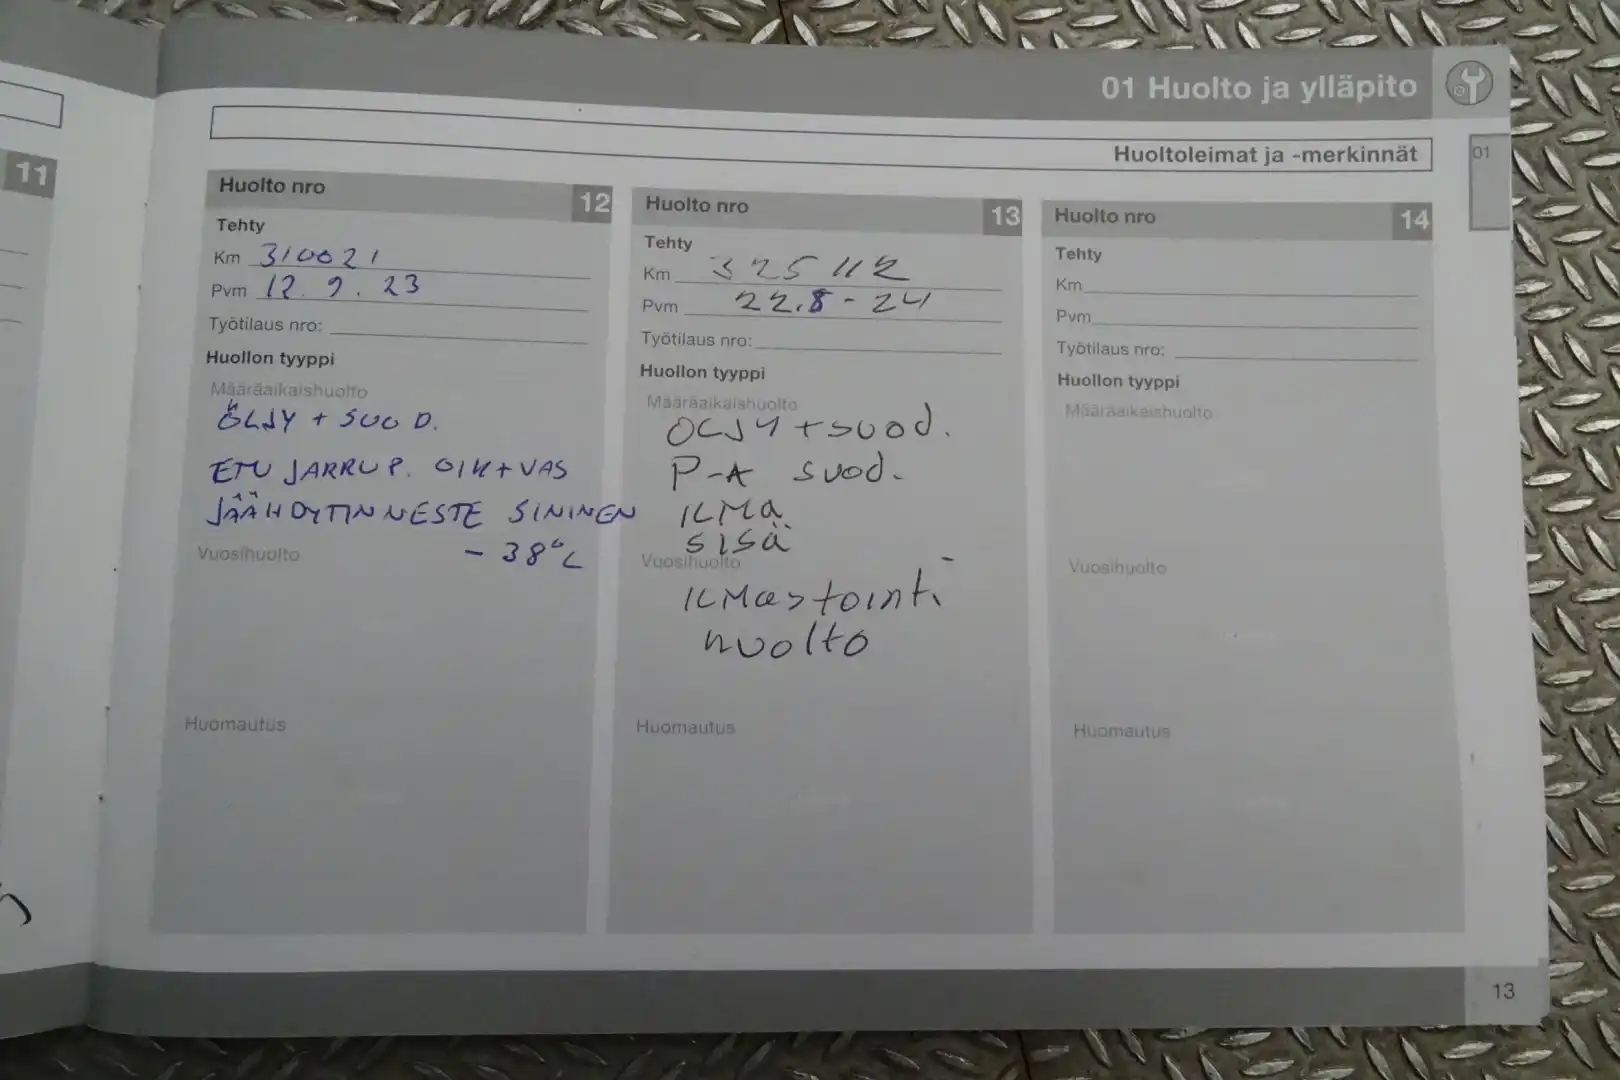 01 Huolto ja ylläpito
Huoltoleimat ja -merkinnät
01
11
Huolto nro 12
Tehty
Km 310021
Pvm 12.9.23
Työtilaus nro:
Huollon tyyppi
Määräaikaishuolto
ÖLJY + SUOD.
ETU JARRUP. OIK+VAS
JÄÄHDYTINNESTE SININEN
Vuosihuolto
-38°C
Huomautus
Huolto nro 13
Tehty
Km 325112
Pvm 22.8-24
Työtilaus nro:
Huollon tyyppi
Määräaikaishuolto
ÖLJY+suod.
P-A suod.
ILMA
SISä
Vuosihuolto
ILMastointi
huolto
Huomautus
Huolto nro 14
Tehty
Km
Pvm
Työtilaus nro:
Huollon tyyppi
Määräaikaishuolto
Vuosihuolto
Huomautus
13